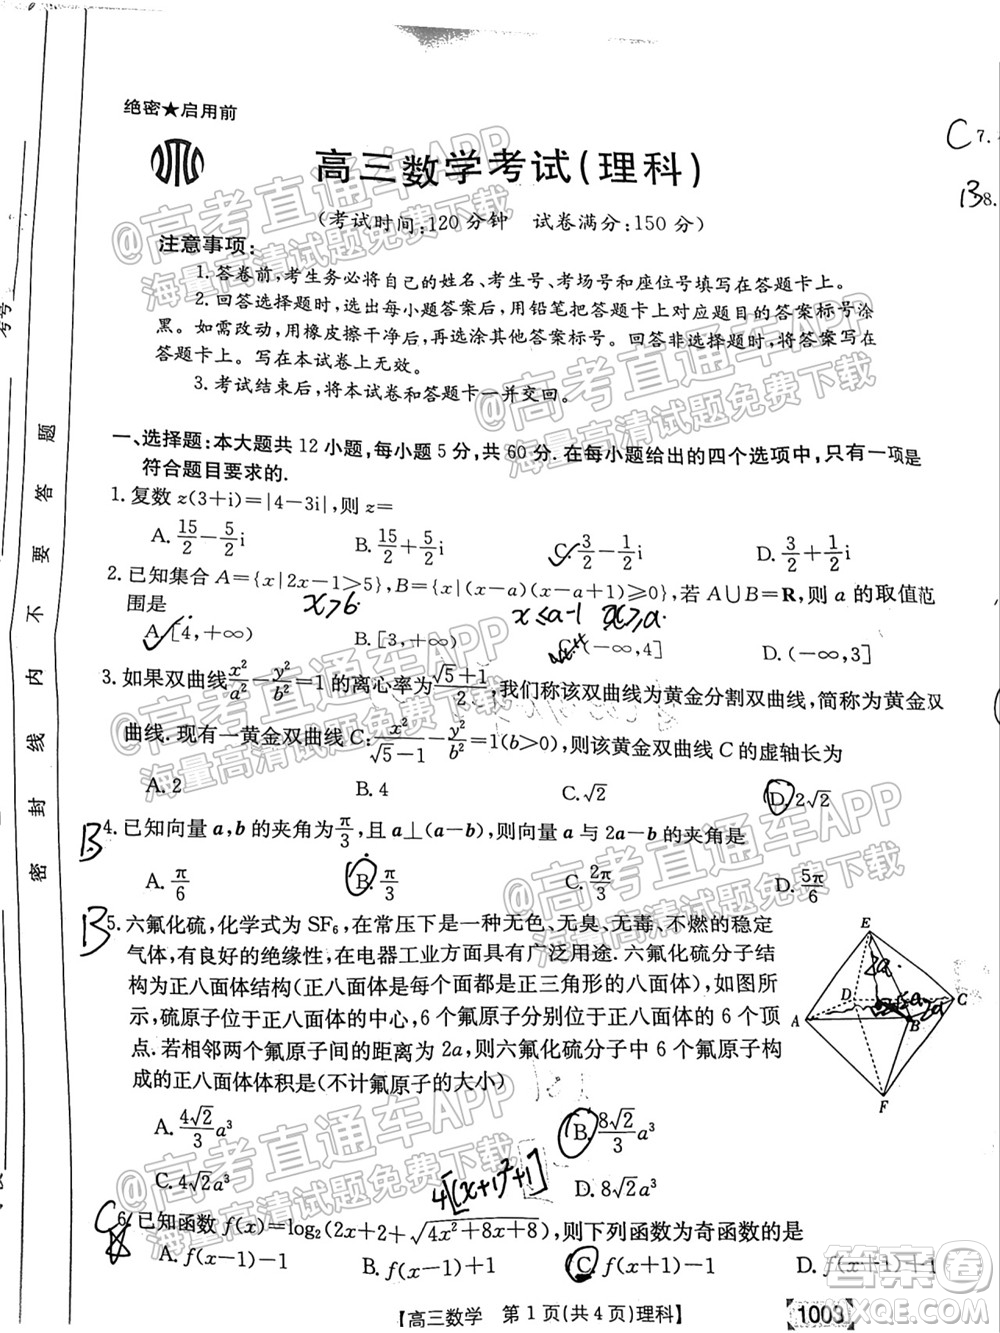 绝密★启用前
C 7.
B 8.
高三数学考试(理科)
(考试时间:120分钟 试卷满分:150分)
注意事项:
1.答卷前,考生务必将自己的姓名、考生号、考场号和座位号填写在答题卡上。
2.回答选择题时,选出每小题答案后,用铅笔把答题卡上对应题目的答案标号涂
黑。如需改动,用橡皮擦干净后,再选涂其他答案标号。回答非选择题时,将答案写在
答题卡上。写在本试卷上无效。
3.考试结束后,将本试卷和答题卡一并交回。
一、选择题:本大题共12小题,每小题5分,共60分.在每小题给出的四个选项中,只有一项是
符合题目要求的.
1.复数z(3+i)=|4-3i|,则z=
A. 15/2-5/2i B. 15/2+5/2i C. 3/2-1/2i D. 3/2+1/2i
2.已知集合A={x|2x-1>5},B={x|(x-a)(x-a+1)≥0},若A∪B=R,则a的取值范
围是
x>6 x≤a-1 x≥a
A.[4,+∞) B.[3,+∞) C.(-∞,4] D.(-∞,3]
3.如果双曲线x²/a²-y²/b²=1的离心率为(√5+1)/2,我们称该双曲线为黄金分割双曲线,简称为黄金双
曲线.现有一黄金双曲线C:x²/(√5-1)-y²/b²=1(b>0),则该黄金双曲线C的虚轴长为
A.2 B.4 C.√2 D.2√2
B 4.已知向量a,b的夹角为π/3,且a⊥(a-b),则向量a与2a-b的夹角是
A. π/6 B. π/3 C. 2π/3 D. 5π/6
B 5.六氟化硫,化学式为SF₆,在常压下是一种无色、无臭、无毒、不燃的稳定
气体,有良好的绝缘性,在电器工业方面具有广泛用途.六氟化硫分子结
构为正八面体结构(正八面体每个面都是正三角形的八面体),如图所
示,硫原子位于正八面体的中心,6个氟原子分别位于正八面体的6个顶
点.若相邻两个氟原子间的距离为2a,则六氟化硫分子中6个氟原子构
成的正八面体体积是(不计氟原子的大小)
E
D
C
A
B
F
A. 4√2/3a³ B. 8√2/3a³
C.4√2a³ D.8√2a³
4[(x+1)²+1]
C 6.已知函数f(x)=log₂(2x+2+√(4x²+8x+8)),则下列函数为奇函数的是
A.f(x-1)-1 B.f(x-1)+1 C.f(x+1)-1 D.f(x+1)+1
【高三数学 第1页(共4页)理科】
1003
密 封 线 内 不 要 答 题
考号
@高考直通车APP
海量高清试题免费下载
@高考直通车APP
海量高清试题免费下载
@高考直通车APP
海量高清试题免费下载
@高考直通车APP
海量高清试题免费下载
@高考直通车APP
海量高清试题免费下载
答案圈
MXQE.COM